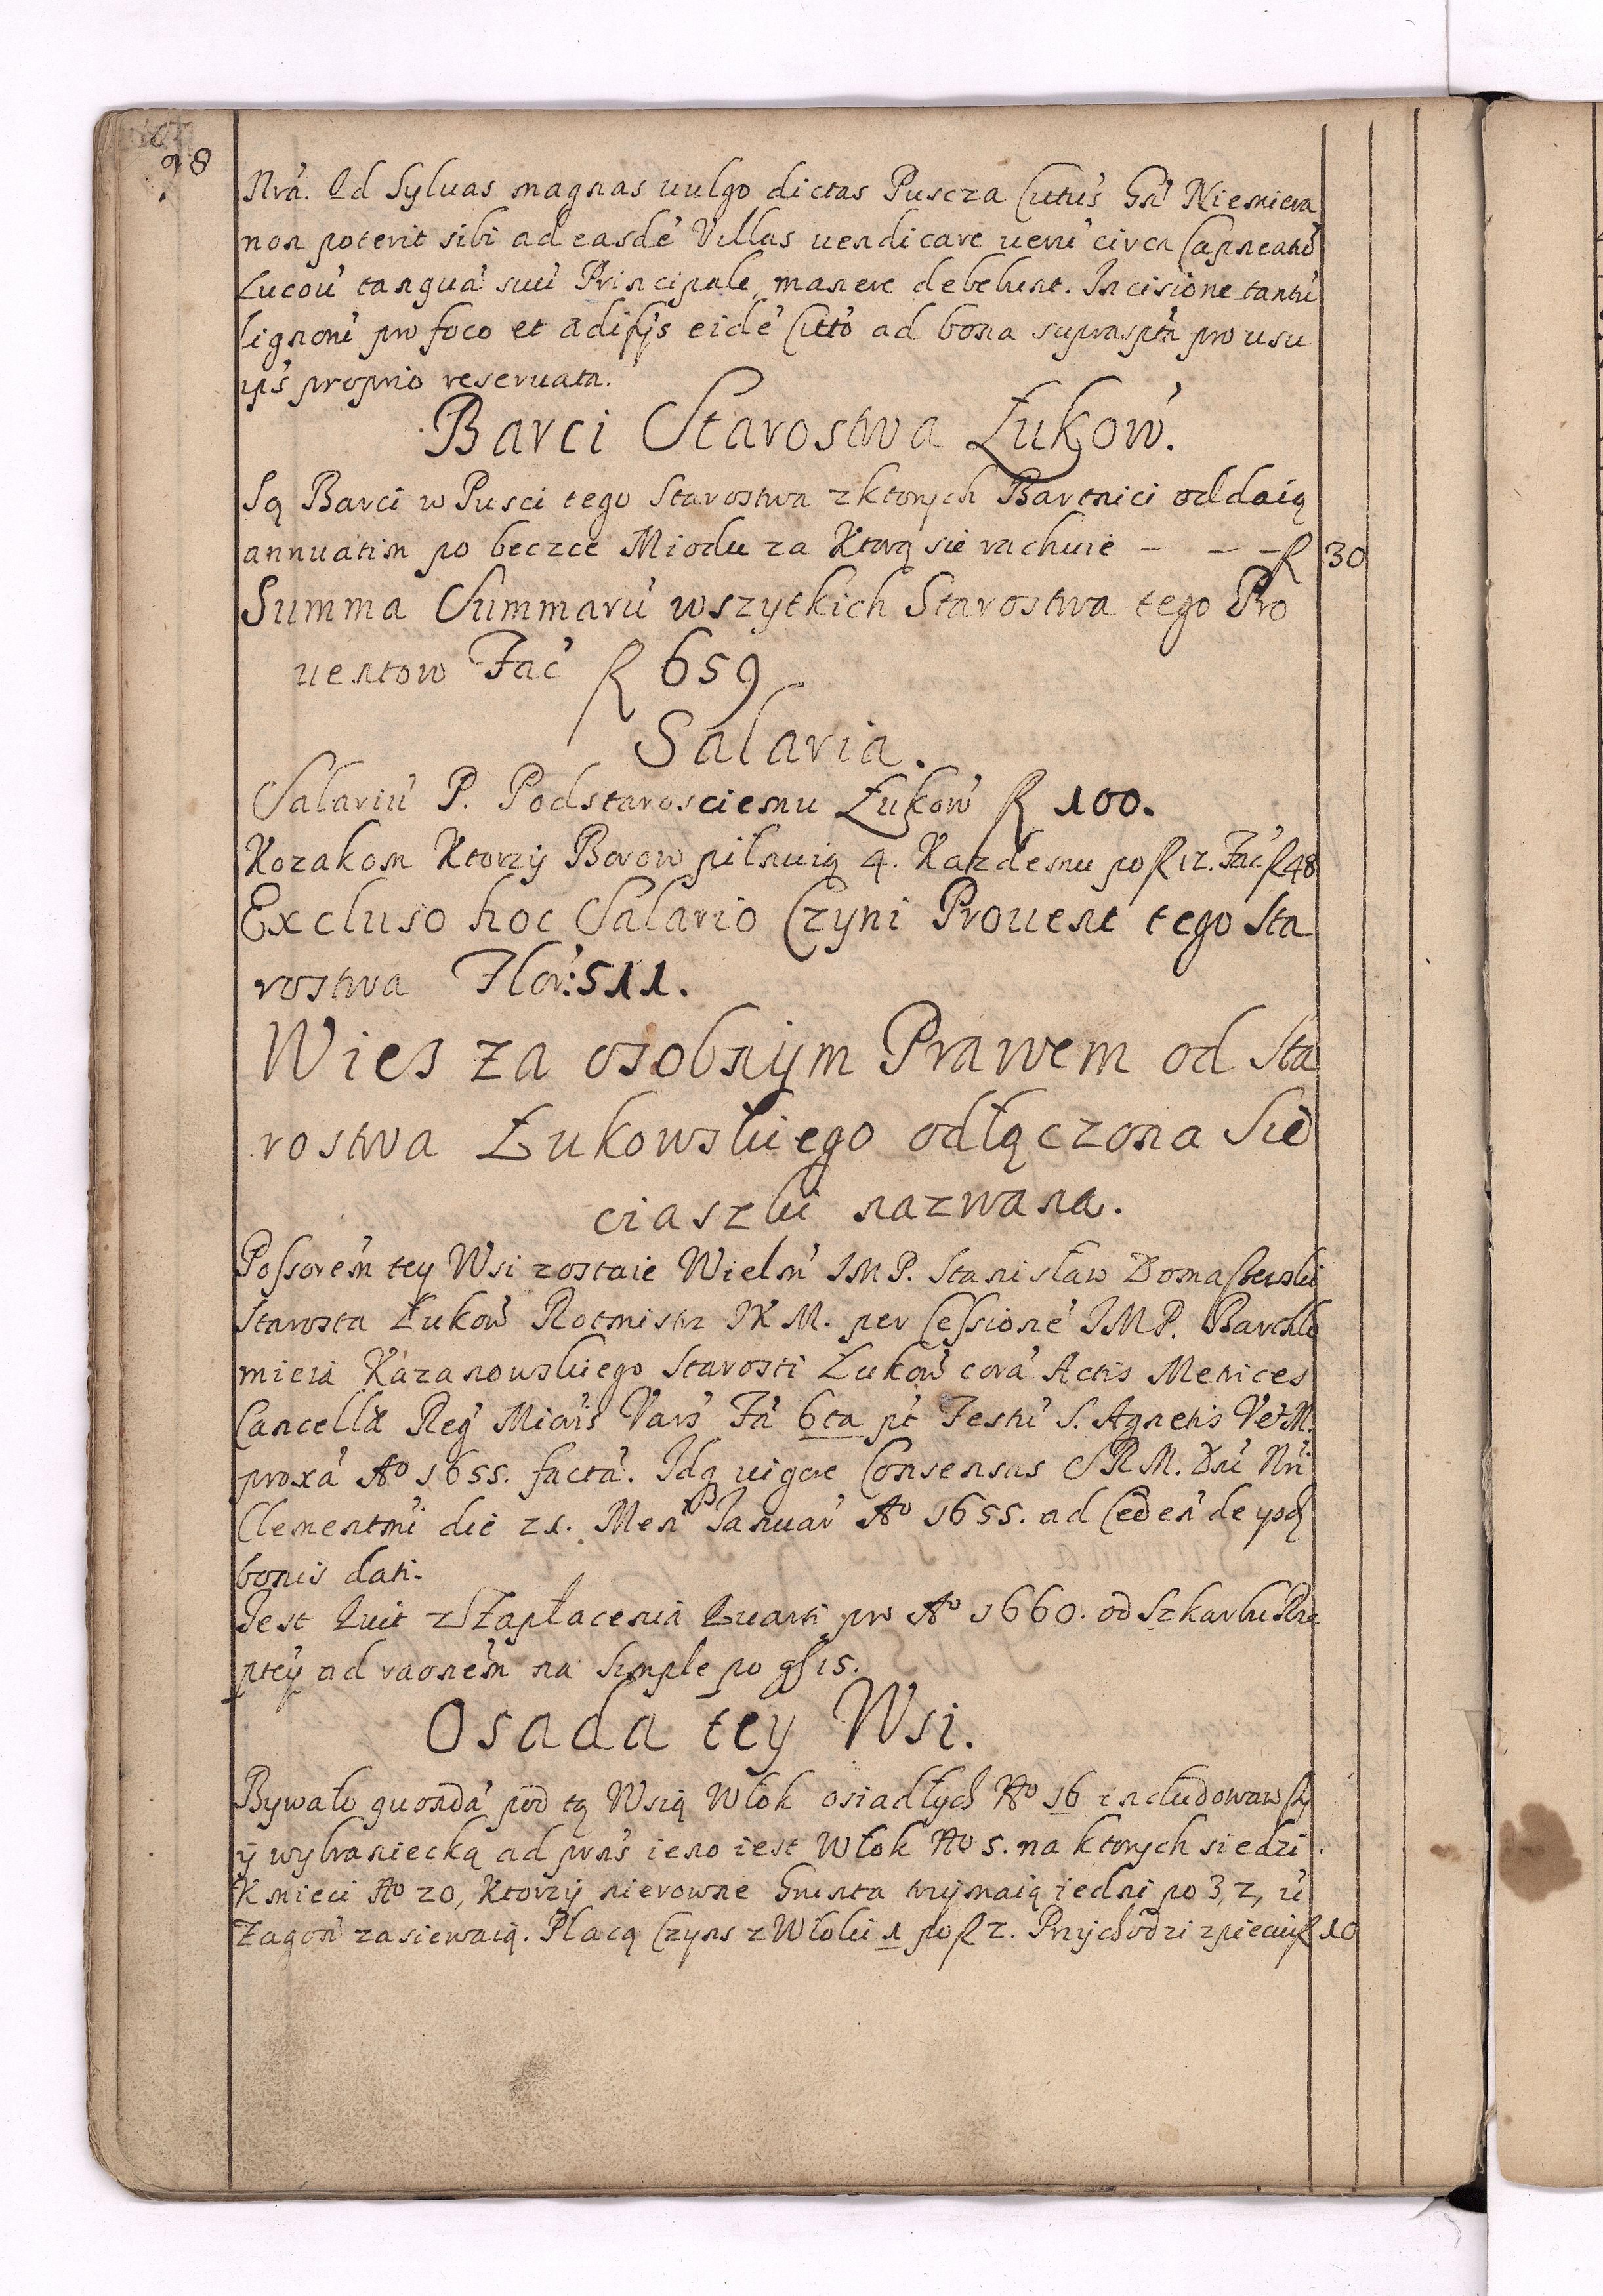 98
Nrã. Qd Syluas magnas uulgo dictas Puscza Cuttus Gń Niemiera
non poterit sibi ad easdé Villas uendicare uerú circa Capneatú
Lucoú tanguá suú Principale manere debebunt. Incisione tantú
lignorú pro foco et ædifijs eidé Cutto ad bona suprasptã pro usu
ips proprio reseruata.
Barci Starostwa Łukow.
Są Barci w Pusci tego Starostwa z ktorych Bartnici oddaią
annuatim po beczce Miodu za Ktorą sie rachuie – – – fl 30
Summa Summarú wszytkich Starostwa tego Pro
uentow Fac fl 659
Salaria.
Salariú P. Podstarosciemu Łukow fl 100.
Kozakom Ktorzy Borow pilnuią 4. Kazdemu po fl 12. Fac fl 48
Excluso hoc Salario Czyni Prouent tego Sta
rostwa Flor: 511.
Wies za osobnym Prawem od Sta
rostwa Łukowskiego odłączona Sie
ciaszki nazwana.
Possorem tey Wsi zostaie Wielm IMP. Stanisław Domaszewski
Starosta Łukow Rotmistrz IKM. per Cessioné IMP. Barthlo
mieia Kazanowskiego Starosti Łukow corá Actis Metrices
Cancellæ Reg Mioris Vars Fá 6ta pt Festú S. Agnetis V et M.
proxá Ao 1655. factá. Idq uigore Consensus SRM. Dni Nri
Clementmi die 21. Men Januar Ao 1655. ad Ceden de ysdʒ
bonis dati.
Jest Quit z Zapłacenia Quarti pro Ao 1660. od Szkarbu Rze
ptey ad raonem na Simple po gſ 15.
Osada tey Wsi.
Bywało quondá pod tą Wsią Włok osiadłych No 16 includowawszy
y wybraniecką ad prns ieno iest Włok No 5. na ktorych siedzi
Kmieci No 20, Ktorzy nierowne Grunta trzymaią iedni po 3, 2, ii
Zagon zasiewaią. Placą Czyns z Włoki 1 po fl 2. Przychodzi z pieciu fl 10